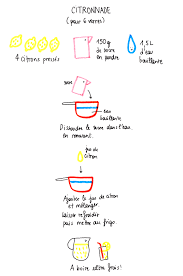 CITRONNADE
(pour 6 verres)
4 citrons pressés
150g
de sucre
en poudre
1,5L
d'eau
bouillante
sucre
eau
bouillante
Dissoudre le sucre dans l'eau
en remuant.
jus de
citron
Ajouter le jus de citron
et mélanger.
Laisser refroidir
puis mettre au frigo.
A boire bien frais!